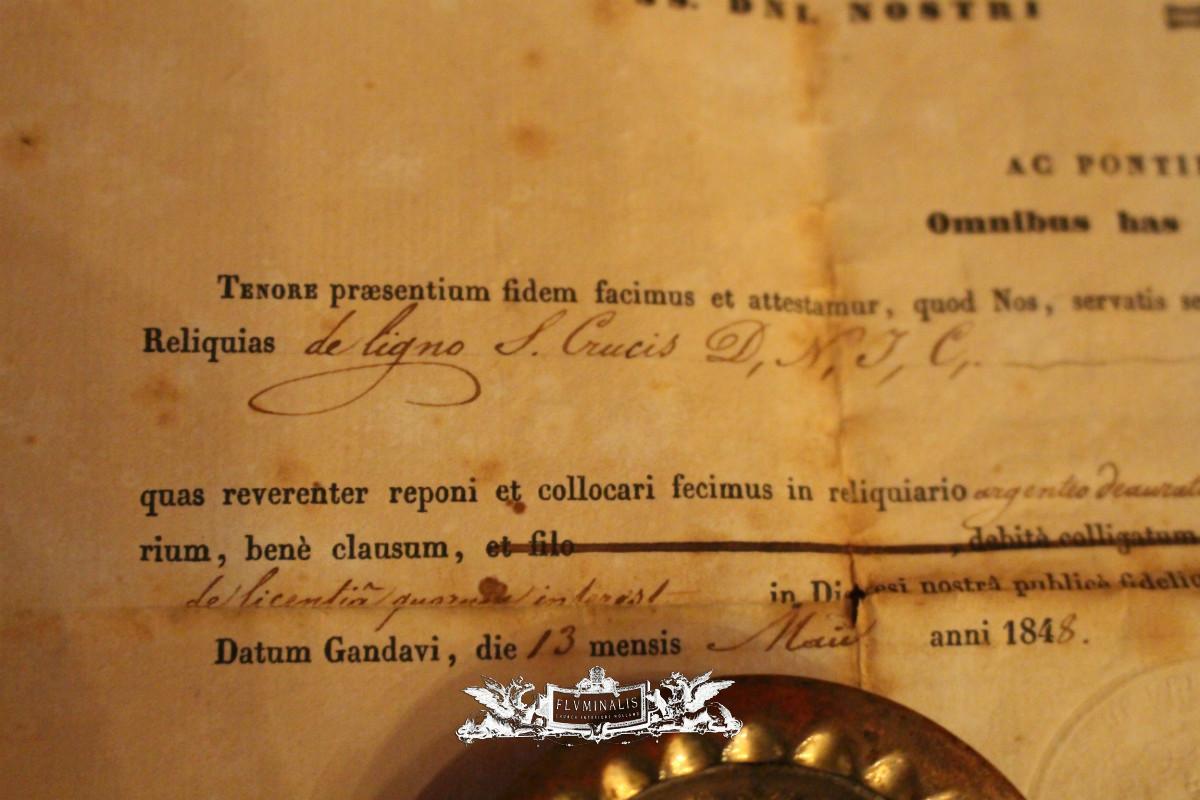 SS. DNI. NOSTRI
AC PONTI
Omnibus has
TENORE præsentium fidem facimus et attestamur, quod Nos, servatis se
Reliquias de ligno S. Crucis D, N, J, C,.
quas reverenter reponi et collocari fecimus in reliquiario argenteo deaurat
rium, benè clausum, et filo , debità colligatum
de licentiâ quorum interest in Diœcesi nostrâ publicè fidelic
Datum Gandavi, die 13 mensis Maii anni 1848.
FLVMINALIS
CHURCH INTERIORS HOLLAND